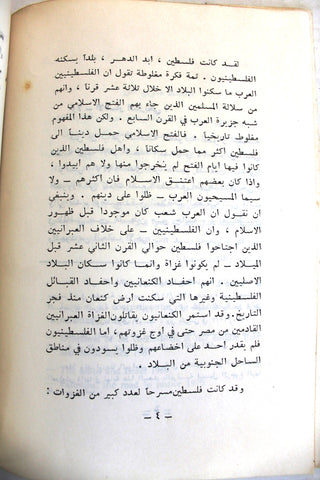 لقـد كانت فلسطين ، ابد الدهـر ، بلدا يسكنه
الفلسطينيون . ثمة فكرة مغلوطة تقول ان الفلسطينيين
العرب ما سكنوا البلاد الا خلال ثلاثة عشر قرنا ، وانهم
من سلالة المسلمين الذين جاء بهم الفتح الاسلامي من
شبه جزيرة العرب في القرن السابع . ولكن هذا المفهوم
مغلوط تاريخيا . فالفتح الاسلامي حمل دينـا الى
فلسطين اكثر مما حمل سكانا ، واهل فلسطين الذين
كانوا فيها ايام الفتح لم يخرجوا منها ولا هم ابيدوا ،
واذا كان بعضهم اعتنـق الاسـلام فان اكثرهم ــ ولا
سيما المسيحيون العرب ــ ظلوا على دينهم . وينبغي
ان نقول ان العرب شعب كان موجودا قبل ظهـور
الاسلام ، وان الفلسطينيين ــ على خلاف العبرانيين
الذين اجتاحوا فلسطين حوالي القرن الثاني عشر قبل
الميلاد ــ لم يكونوا غزاة وانما كانوا سكان البـلاد
الاصليين . انهم احفاد الكنعانيين واحفاد القبـائل
الفلسطينية وغيرها التي سكنت ارض كنعان منذ فجر
التاريخ. وقد استمر الكنعانيون يقاتلون الغزاة العبرانيين
القادمين من مصر حتى في اوج غزوتهم، اما الفلسطينيون
فلم يقدر احد على اخضاعهم وظلوا يسودون في مناطق
الساحل الجنوبية من البـلاد .
وقد كانت فلسطين مسرحا لعدد كبير من الغزوات :
ــ ٤ ــ